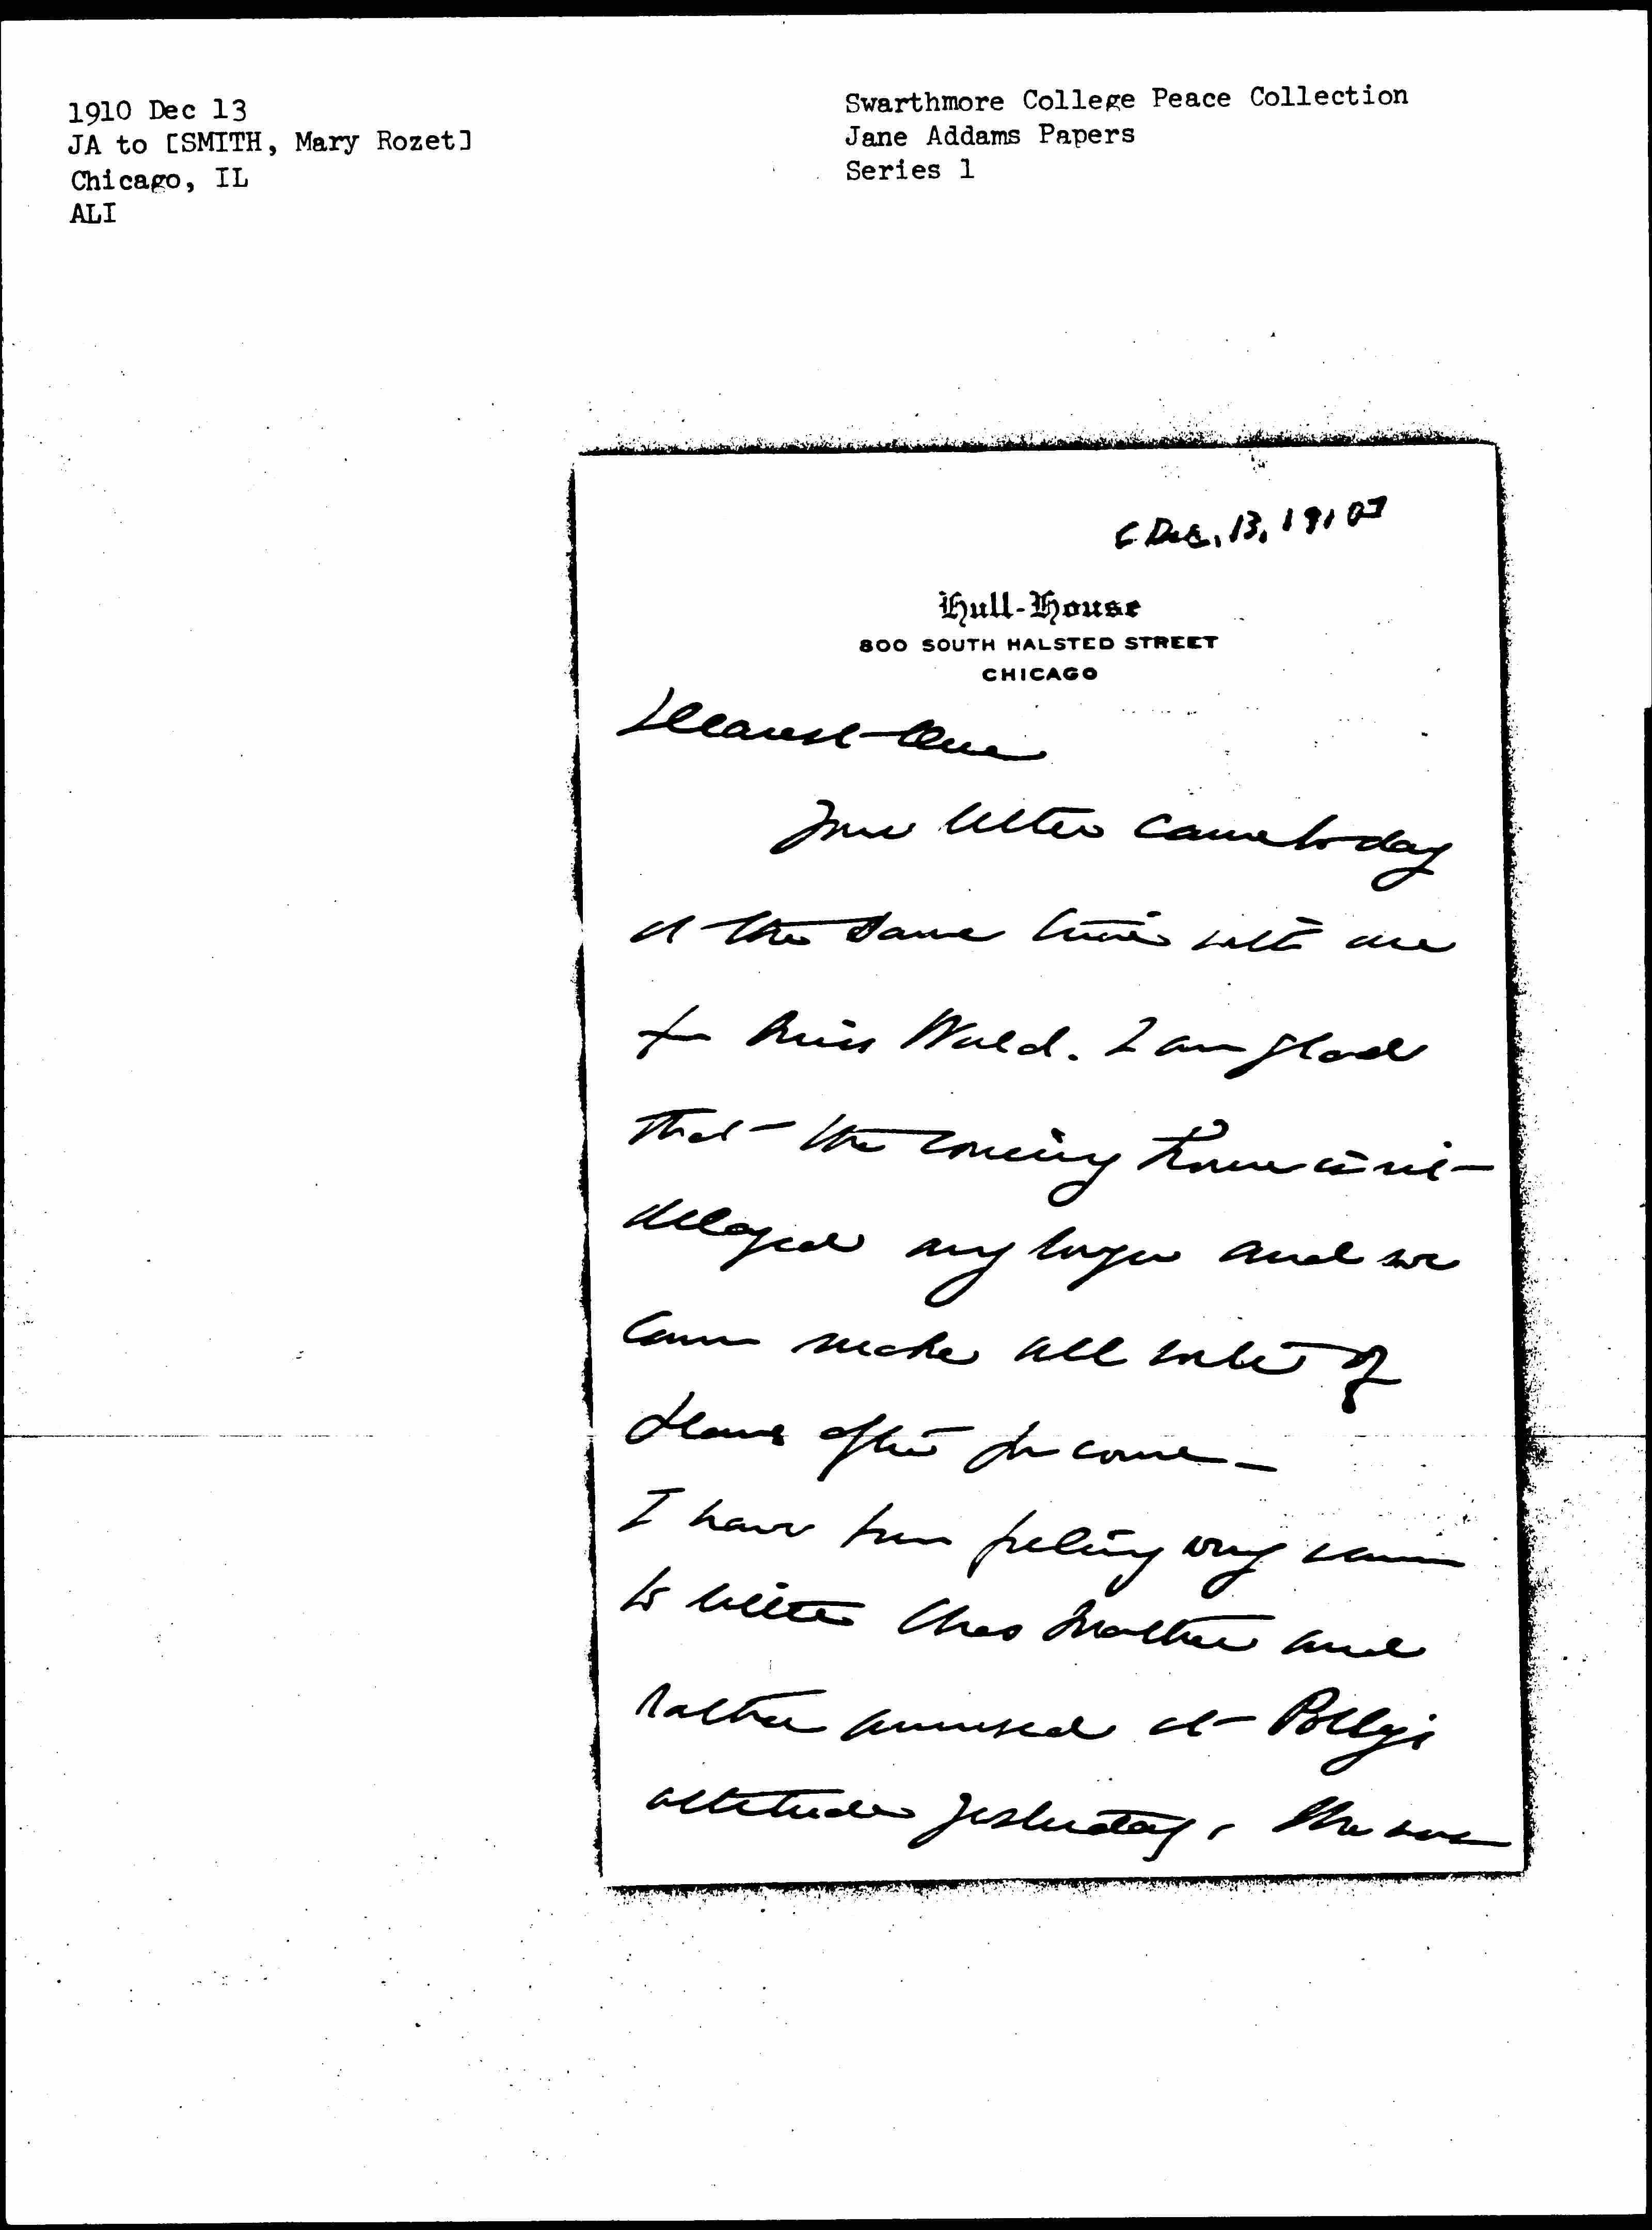 1910 Dec 13
JA to [SMITH, Mary Rozet]
Chicago, IL
ALI
Swarthmore College Peace Collection
Jane Addams Papers
Series 1
[Dec. 13, 1910]
Hull-House
800 SOUTH HALSTED STREET
CHICAGO
Dearest One
Your letter came to-day
at the same time with one
fr Miss Wald. I am glad
that the coming home is not
delayed any longer and we
can make all sorts of
plans after you come —
I have been feeling very
to better this matter and
rather amused at Polly's
attitude yesterday, She was